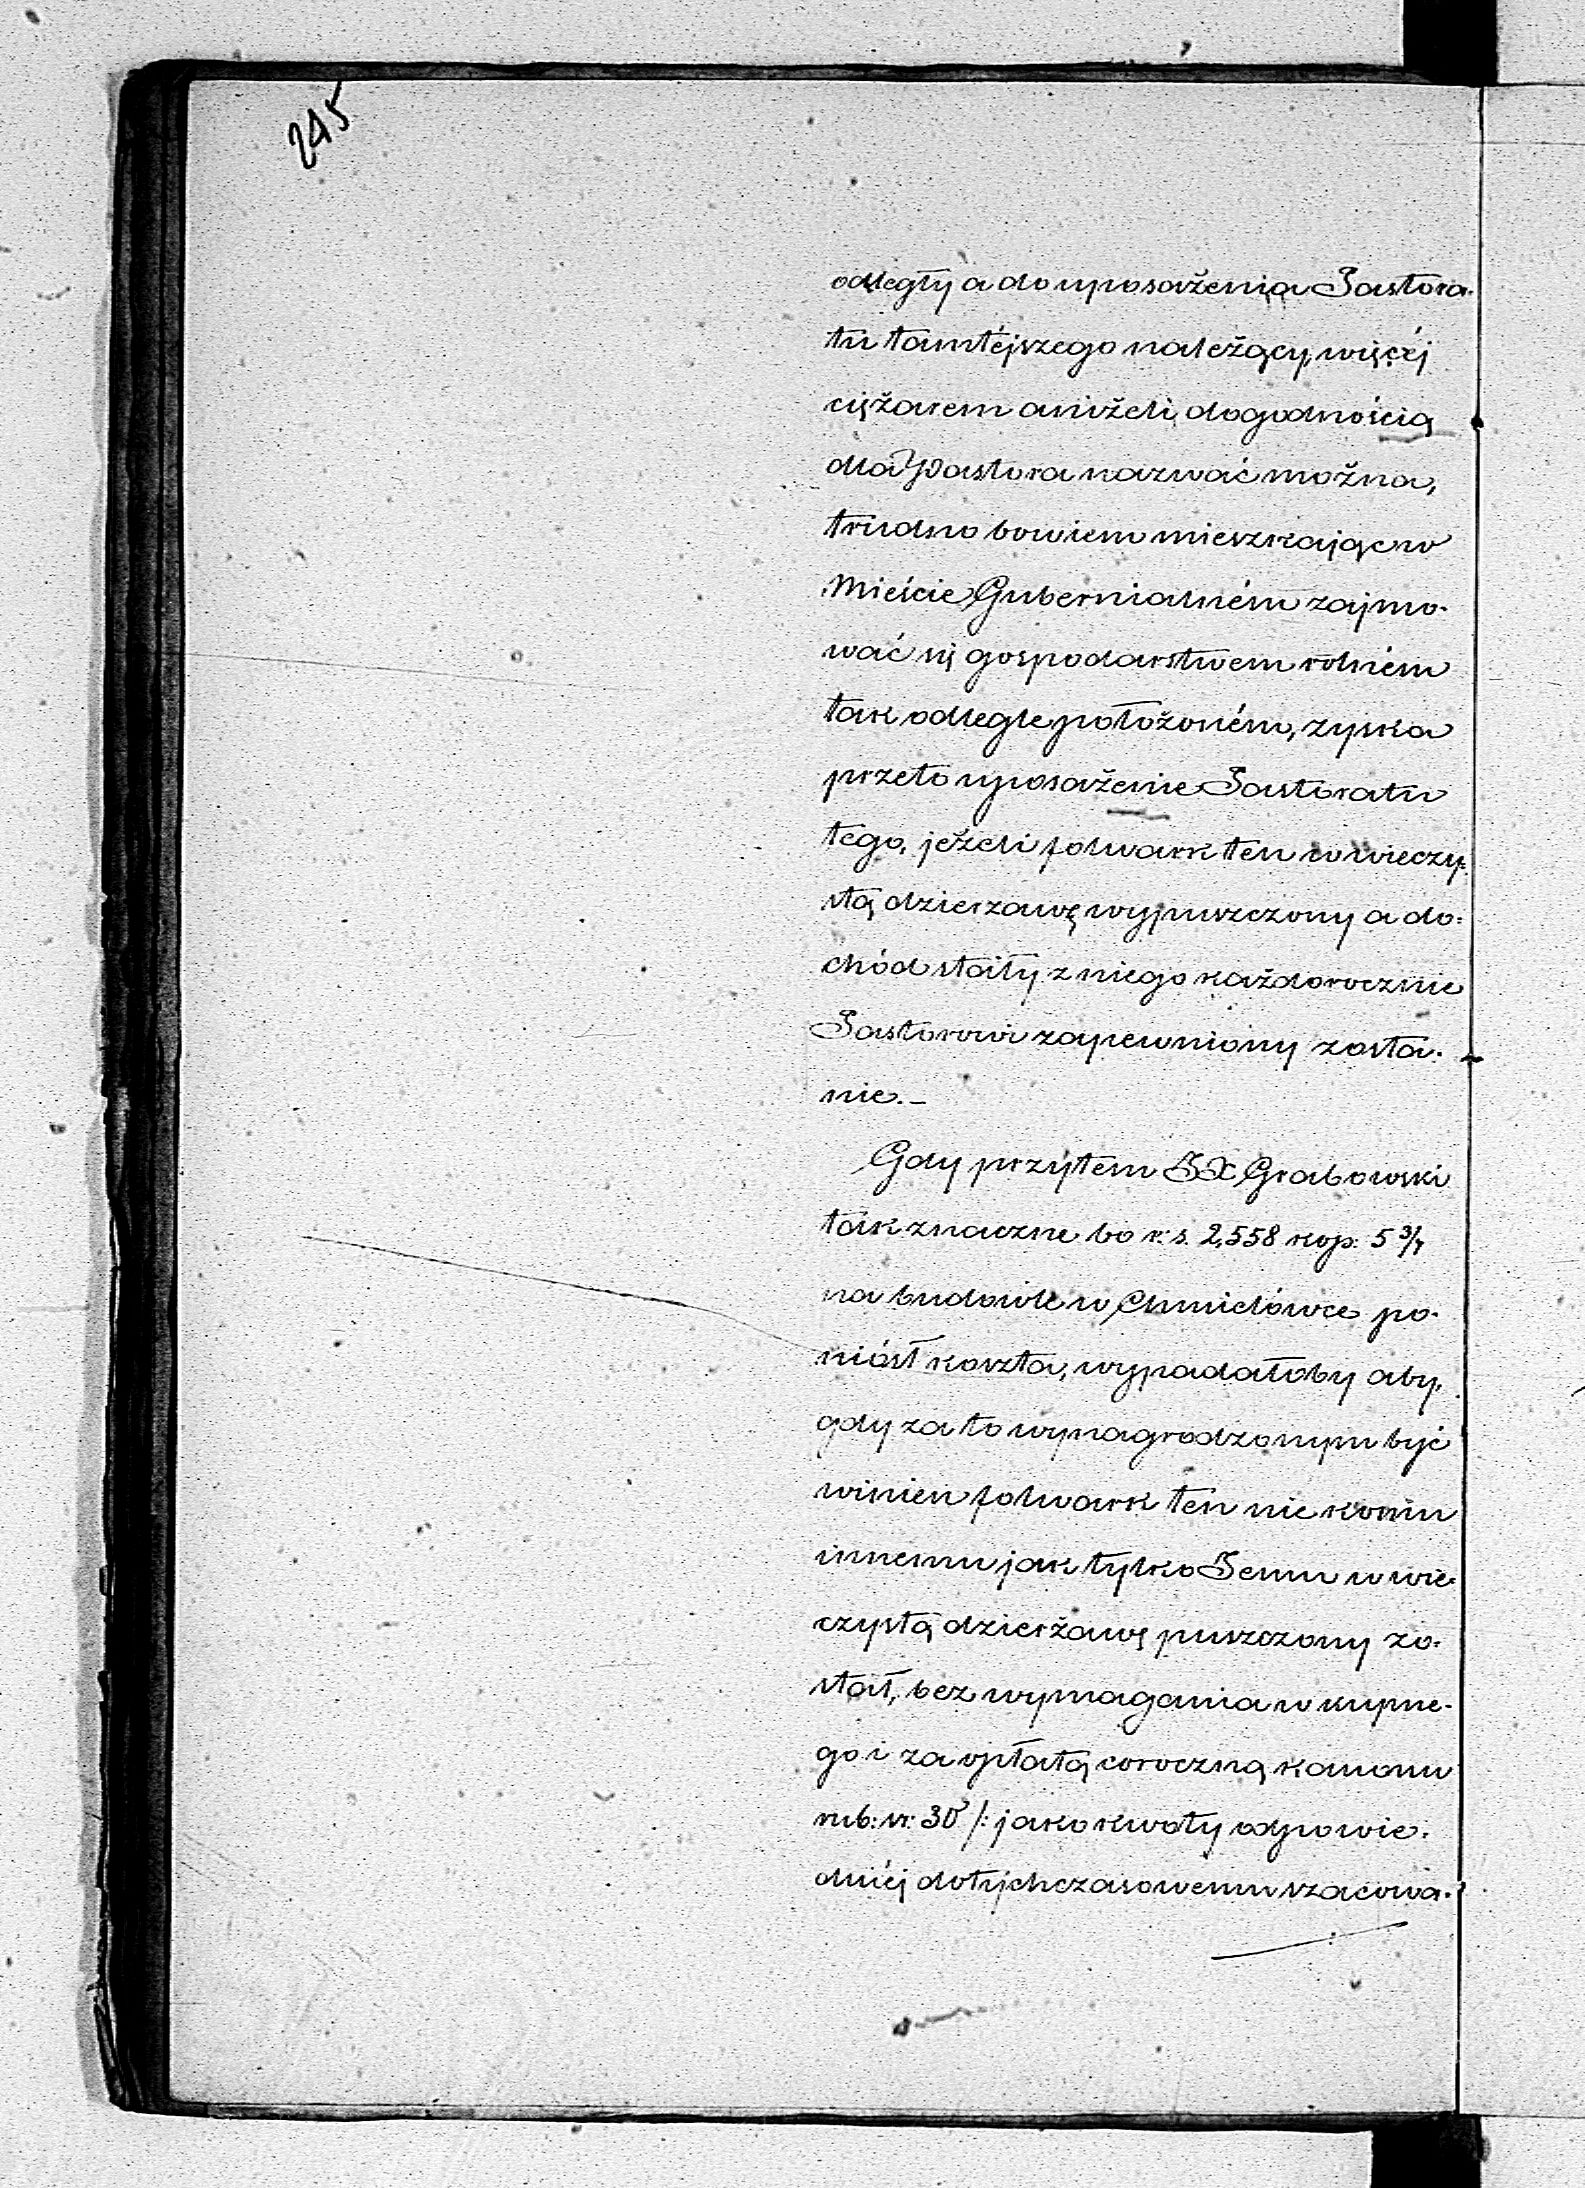 245
odległy a do uposażenia Pastora-
tu tamtéjszego należący, więcéj
ciężarem aniżeli dogodnością
dla Pastora nazwać można,
trudno bowiem mieszkając w
Mieście Gubernialném zajmo-
wać się gospodarstwem rolném
tak odlegle położoném, zyska
przeto uposażenie Pastoratu
tego, jeżeli folwark ten w wieczy-
stą dzierzawę wypuszczony a do-
chód stały z niego każdorocznie
Pastorowi zapewniony zosta-
nie.–
Gdy przytem JX Grabowski
tak znaczne bo r: s. 2,558 kop: 5 3/7
na budowle w Chmielówce po-
niósł koszta, wypadałoby aby,
gdy za to wynagrodzonym być
winien folwark ten nie komu
innemu jak tylko Jemu w wie-
czystą dzierżawę puszczony zo-
stał, bez wymagania wkupne-
go i za opłatą coroczną kanonu
rub: sr: 30 /: jako kwoty odpowie-
dniéj dotychczasowemu szacowa-